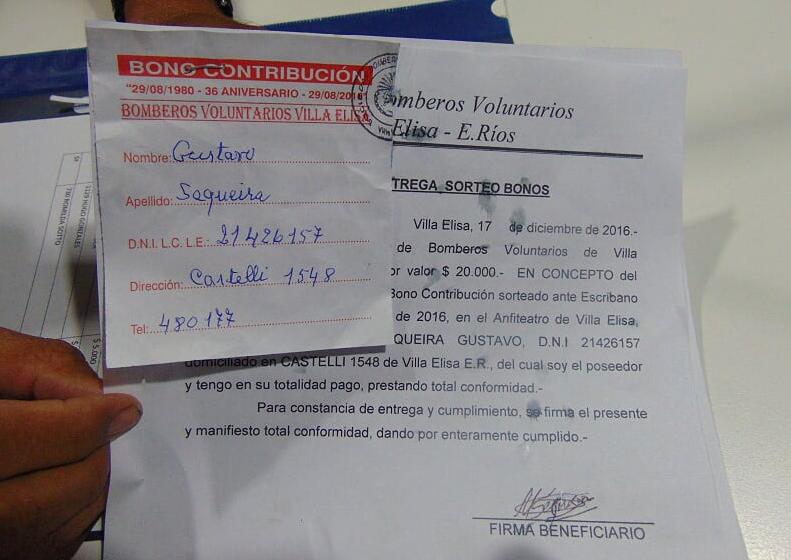 BONO CONTRIBUCIÓN
"29/08/1980 - 36 ANIVERSARIO - 29/08/2016
BOMBEROS VOLUNTARIOS VILLA ELISA
Nombre: Gustavo
Apellido: Saqueira
D.N.I. L.C. L.E.: 21426157
Dirección: Castelli 1548
Tel: 480177
omberos Voluntarios
Elisa - E.Ríos
TREGA SORTEO BONOS
Villa Elisa, 17 de diciembre de 2016.-
de Bomberos Voluntarios de Villa
or valor $ 20.000.- EN CONCEPTO del
Bono Contribución sorteado ante Escribano
de 2016, en el Anfiteatro de Villa Elisa,
QUEIRA GUSTAVO, D.N.I 21426157
domiciliado en CASTELLI 1548 de Villa Elisa E.R., del cual soy el poseedor
y tengo en su totalidad pago, prestando total conformidad.-
Para constancia de entrega y cumplimiento, se firma el presente
y manifiesto total conformidad, dando por enteramente cumplido.-
FIRMA BENEFICIARIO
1129 HUGO GONZALES
780 ROMILDA SOTTO
$ 5.000